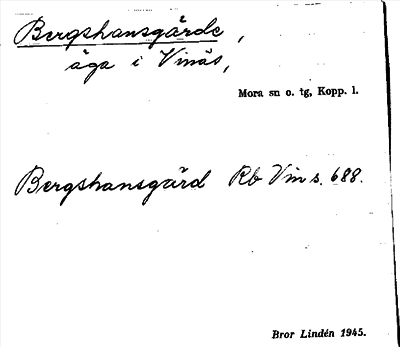 Bergshansgårde,
äga i Vinäs,
Mora sn o. tg, Kopp. l.
Bergshansgård Rb Vin s. 688.
Bror Lindén 1945.